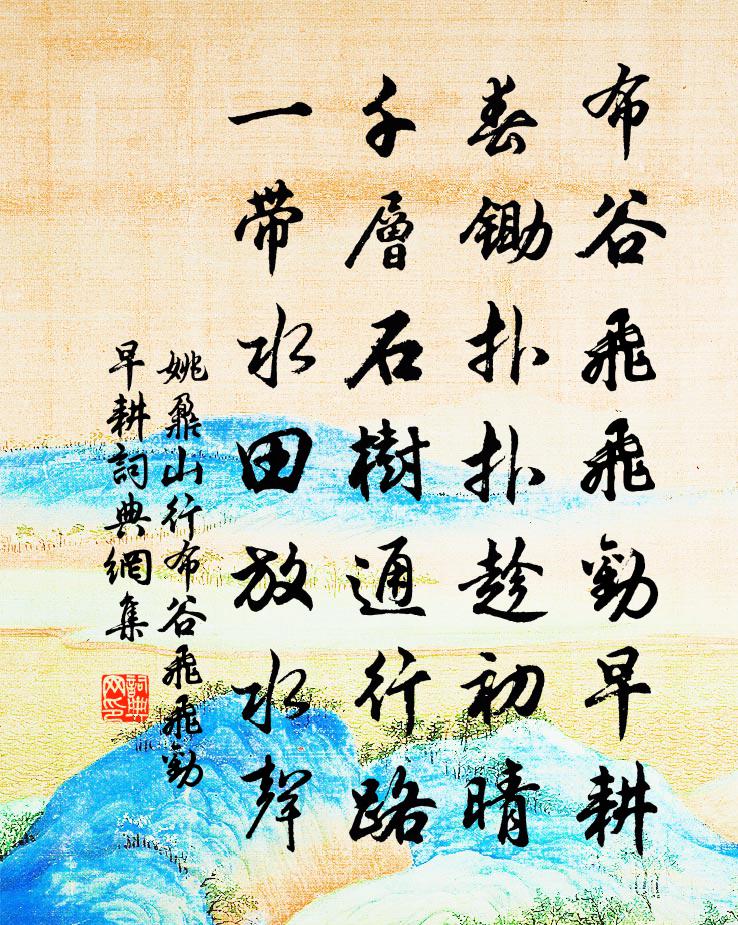 布谷飛飛勸早耕
舂鋤扑扑趁初晴
千層石樹通行路
一帶水田放水聲
姚鼐山行布谷飛飛勸
早耕詞典網集
詞典
网印